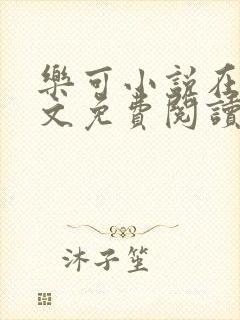 樂可小說在
文免費閱讀
沐子笙